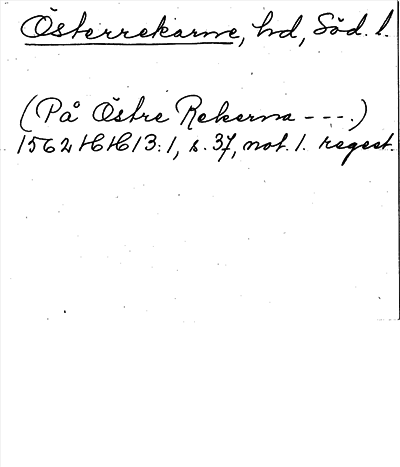 Österrekarne, hd, Söd. l.
(På Östre Rekerna ---.)
1562 HH 13:1, s. 37, not. 1. regest.